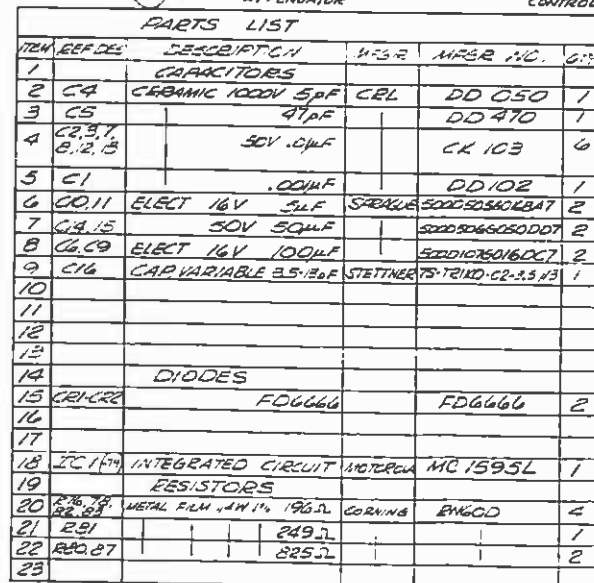 ATTENUATOR
CONTROL
PARTS LIST
ITEM REF DES DESCRIPTION MFGR MFGR NO. QTY
1 CAPACITORS
2 C4 CERAMIC 1000V 5pF CRL DD 050 1
3 C5 47pF DD 470 1
4 C2,3,7, 50V .01µF CK 103 6
8,12,13
5 C1 .001µF DD102 1
6 C10,11 ELECT 16V 5µF SPRAGUE 2
7 C14,15 50V 50µF 2
8 C6,C9 ELECT 16V 100µF 2
9 C16 CAP, VARIABLE 3.5-13pF STETTNER 1
10
11
12
13
14 DIODES
15 CR1-CR2 FD6666 FD6666 2
16
17
18 IC1 INTEGRATED CIRCUIT MOTOROLA MC 1595L 1
19 RESISTORS
20 R76,78, METAL FILM 1% 196Ω CORNING RN60D 4
82,83
21 R81 249Ω 1
22 R80,87 825Ω 2
23